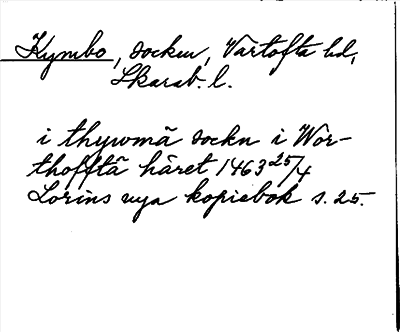 Kymbo, socken, Vartofta hd,
Skarab. l.
i thywmã sockn i Wor-
thofftã häret 1463 25/4
Lorins nya kopiebok s. 25.